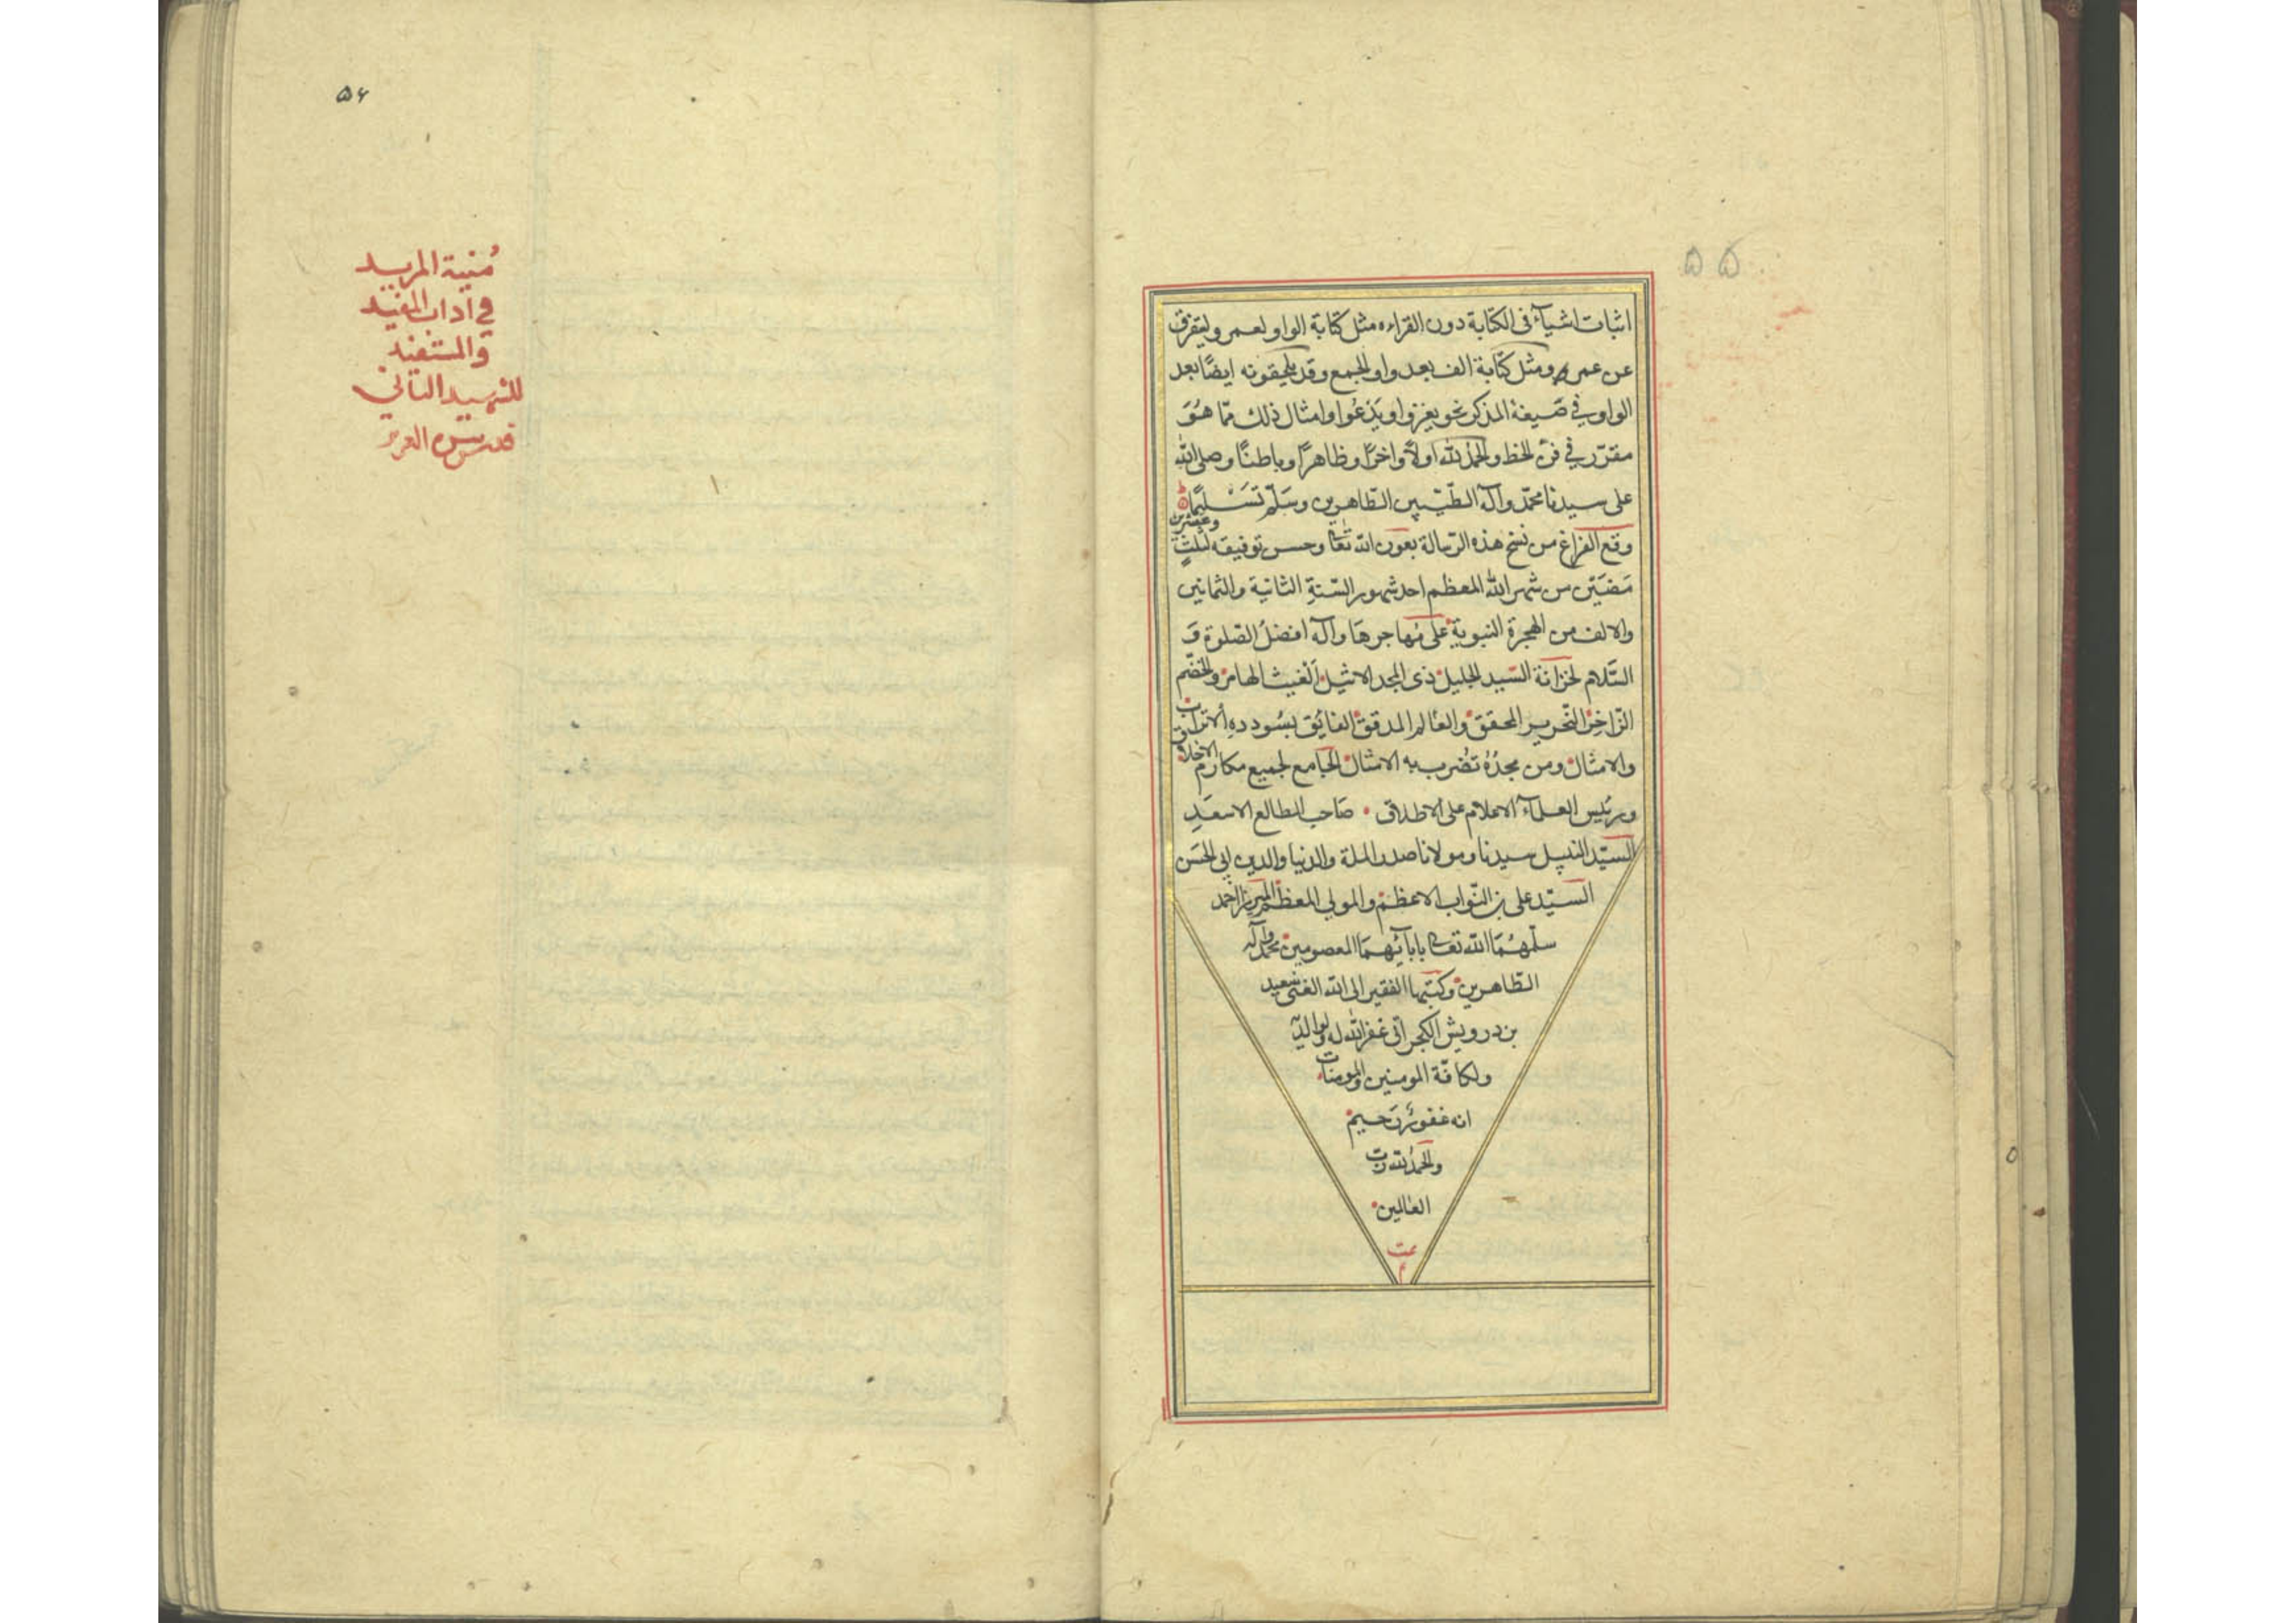 ۵۵
اثبات اشيآء فى الكتابة دون القراءه مثل كتابة الواو لعمر وليتفرق
عن عمر ومثل كتابة الف بعد واو الجمع وقد يلحقونه ايضًا بعد
الواو في صَيغة المذكر نحو يغزوا ويَدْعُوا وامثال ذلك ممّا هُوَ
مقرّر في فن الخط والحمد لله اولاً واخرًا وظاهرًا وباطنًا وصلى الله
على سيدنا محمّد وآله الطّيّبين الطّاهرين وسَلّم تَسْليمًا
وقع الفراغ من نسخ هذه الرّسالة بعون الله تعا وحسن توفيقه لثلثٍ وعشرين
مَضَين من شهر الله المعظم احد شهور السّنة الثانية والثمانين
والالف من الهجرة النبوية على مُهاجرهَا وآله افضلُ الصّلوة وَ
السَّلام لخزانة السّيد الجليل ذى المجد الاثيل الغيث الهامر والخضّم
الزّاخِر النّحرير المحقق والعالم المدقق الفايق بسُودده الاتراب
والامثال ومن مجدُهُ تُضرب به الامثال الجامع لجميع مكارم الاخلاق
ورئيس العلمآء الاعلام على الاطلاق صَاحب الطالع الاسعَدِ
السيّد النبيل سيدنا ومولانا صدر الملة والدنيا والدين ابي الحسَن
السيّد على بن النّواب الاعظم والمولى المعظم الميرزا احمد
سلّمهُمَا الله تعا بابآئهمَا المعصومين محمد وآله
الطّاهرين وكتبها الفقير الى الله الغنى سَعيد
بن درويش الكجراتى غفر الله له ولوالديه
ولكافّة المومنين والمومنات
انه غفورٌ رَحيم
والحمد لله ربّ
العالمين
تمت
م
۵۶
مُنية المريد
في اداب المفيد
والمستفيد
للشهيد الثاني
قدس سره العزيز